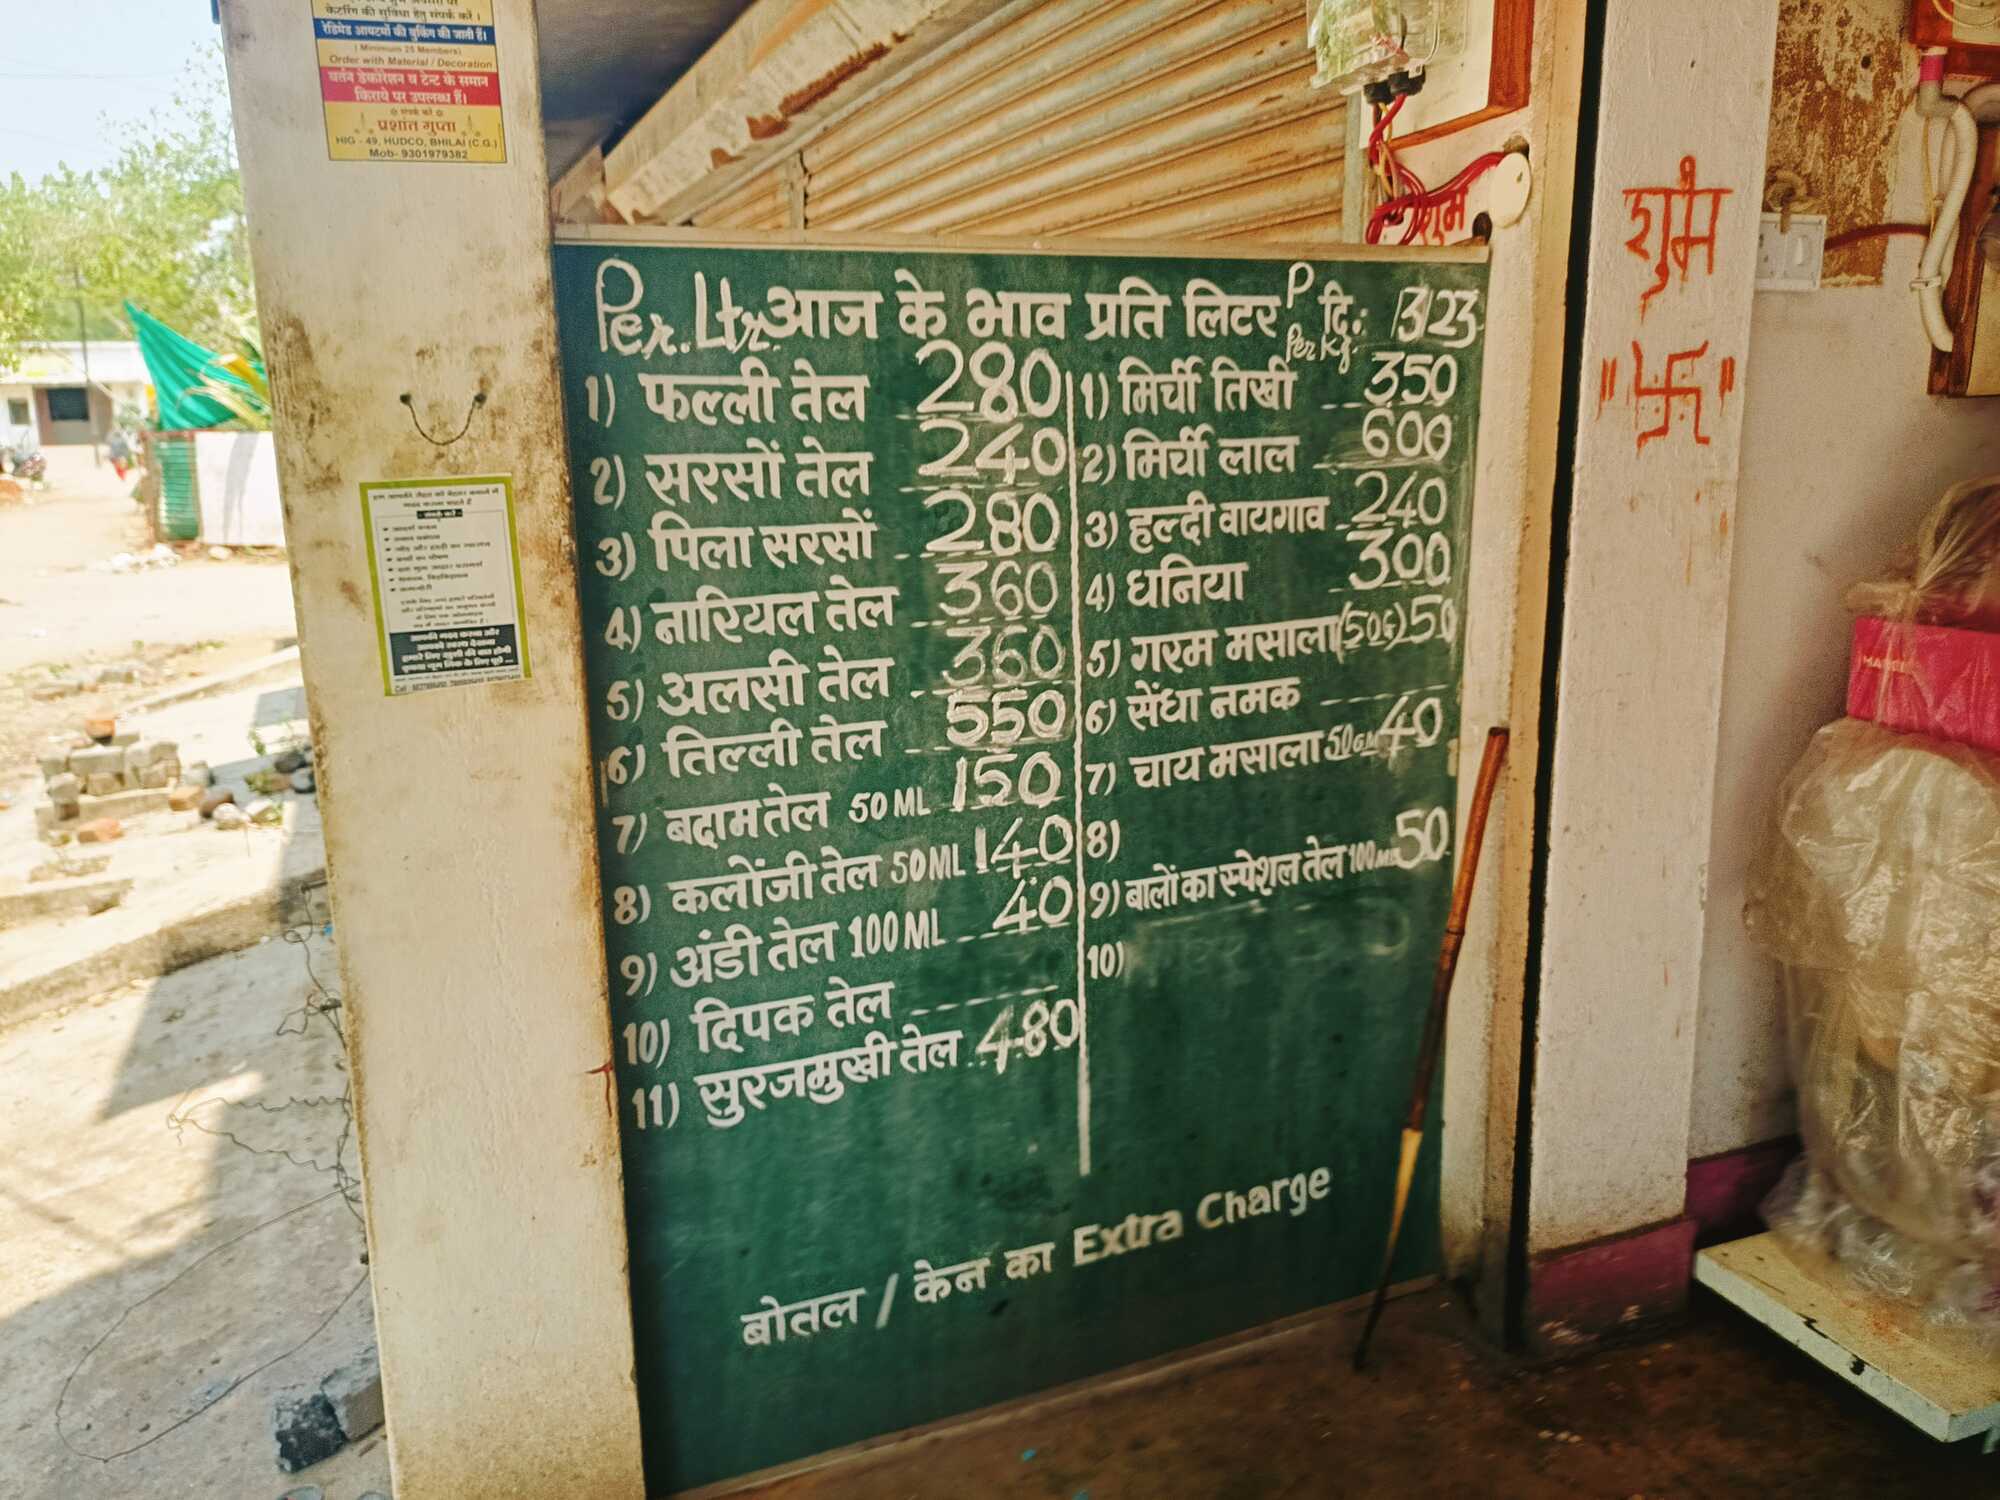 केटरिंग की सुविधा हेतु संपर्क करें ।
रेडिमेड आयटमों की बुकिंग की जाती हैं।
( Minimum 25 Members)
Order with Material / Decoration
बर्तन डेकोरेशन व टेन्ट के समान
किराये पर उपलब्ध हैं।
संपर्क करें
प्रशांत गुप्ता
HIG - 49, HUDCO, BHILAI (C.G.)
Mob- 9301979382
आपकी मदद करना और
आपको स्वस्थ देखना
हमारे लिए खुशी की बात होगी
Per. Ltr. आज के भाव प्रति लिटर P Per Kg. दि: 13/23
1) फल्ली तेल 280
2) सरसों तेल 240
3) पिला सरसों 280
4) नारियल तेल 360
5) अलसी तेल 360
6) तिल्ली तेल 550
7) बदाम तेल 50 ML 150
8) कलोंजी तेल 50 ML 140
9) अंडी तेल 100 ML 40
10) दिपक तेल
11) सुरजमुखी तेल 480
1) मिर्ची तिखी 350
2) मिर्ची लाल 600
3) हल्दी वायगाव 240
4) धनिया 300
5) गरम मसाला (50G) 50
6) सेंधा नमक
7) चाय मसाला 50GM 40
8)
9) बालों का स्पेशल तेल 100 ML 50
10)
बोतल / केन का Extra Charge
शुभ
शुभ